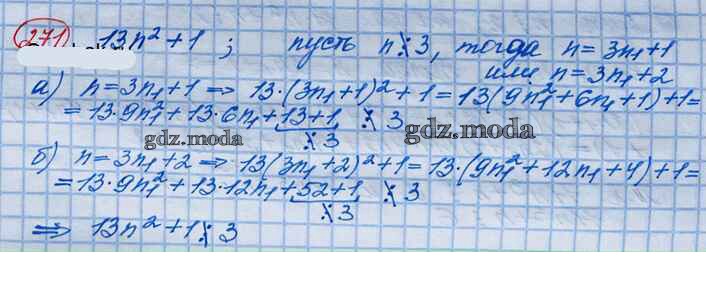 271 13n² + 1 ; пусть n ⋮̸ 3, тогда n = 3n₁+1
или n = 3n₁+2
а) n = 3n₁+1 ⟹ 13·(3n₁+1)² + 1 = 13(9n₁²+6n₁+1)+1=
= 13·9n₁² + 13·6n₁ + 13+1 ⋮̸ 3
⋮̸ 3
gdz.moda gdz.moda
б) n = 3n₁+2 ⟹ 13(3n₁+2)²+1 = 13·(9n₁²+12n₁+4)+1=
= 13·9n₁² + 13·12n₁ + 52+1 ⋮̸ 3
⋮̸ 3
⟹ 13n²+1 ⋮̸ 3